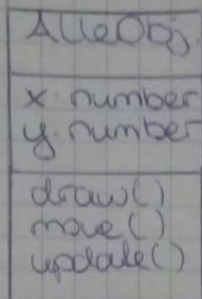 AlleObj.
x: number
y: number
draw()
move()
update()